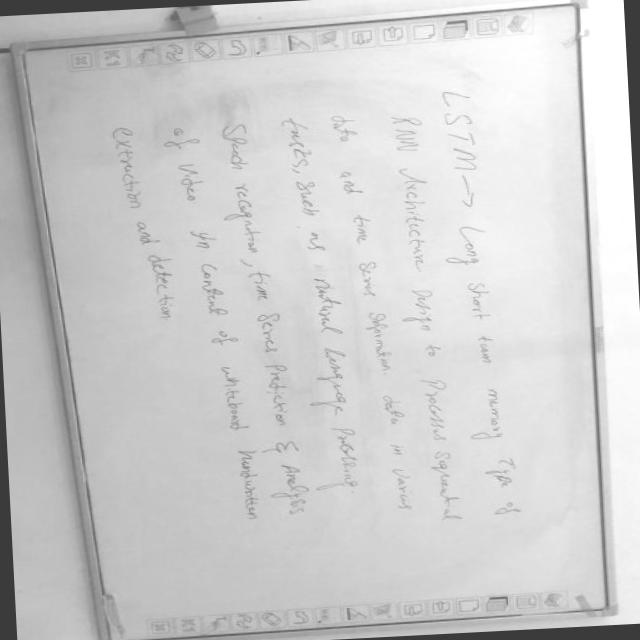 LSTM → Long short term memory Type of
RNN Architecture Design to Process sequential
data and time series information data in various
tasks, such as natural language processing.
Speech recognition, time series Prediction & Analysis
of Video In context of whiteboard handwritten
extraction and detection